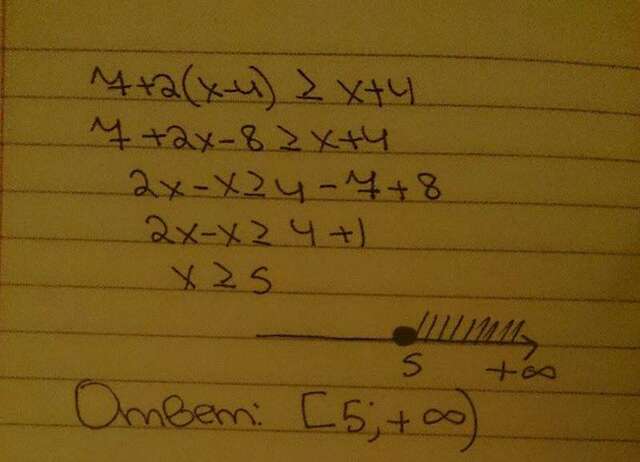 7+2(x-4) ≥ x+4
7+2x-8 ≥ x+4
2x-x ≥ 4-7+8
2x-x ≥ 4+1
x ≥ 5
5 +∞
Ответ: [5;+∞)